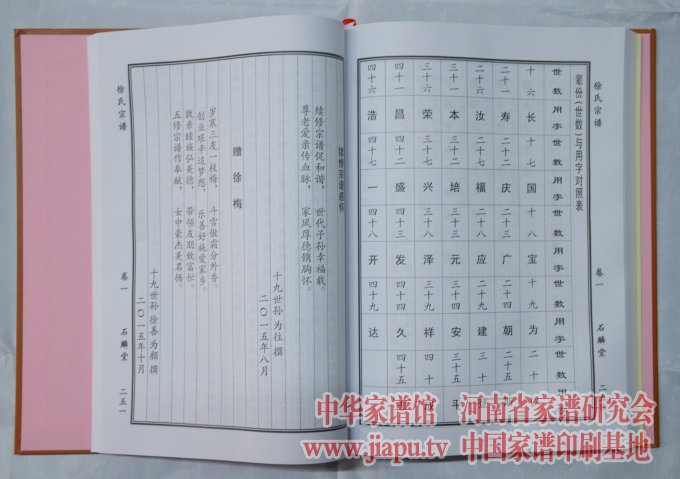 徐氏宗谱 卷一 石麟堂
辈份(世数)与用字对照表
世数 用字 世数 用字 世数 用字 世数 用字 世数 用
十六 长 十七 国 十八 宝 十九 为 二十
二十一 寿 二十二 庆 二十三 广 二十四 朝 二十五
二十六 汝 二十七 福 二十八 应 二十九 建 三十
三十一 本 三十二 培 三十三 元 三十四 安 三十五 平
三十六 荣 三十七 兴 三十八 泽 三十九 祥 四十
四十一 昌 四十二 盛 四十三 发 四十四 久 四十五
四十六 浩 四十七 一 四十八 开 四十九 达
续修宗谱感怀
续修宗谱促和谐, 世代子孙幸福栽。
尊老爱亲传血脉, 家风厚德镌胸怀。
十九世孙 为往 撰
二〇一五年八月
赠 徐 梅
岁寒三友一枝梅, 斗雪傲霜分外香。
创业艰辛追梦想, 乐善好施爱家乡。
敦亲睦族弘美德, 带领友朋致富忙。
五修宗谱作奉献, 女中豪杰美名扬。
十九世孙 徐善为颜 撰
二〇一五年十月
徐氏宗谱 卷一 石麟堂 二五一
中华家谱馆 河南省家谱研究会
www.jiapu.tv 中国家谱印刷基地